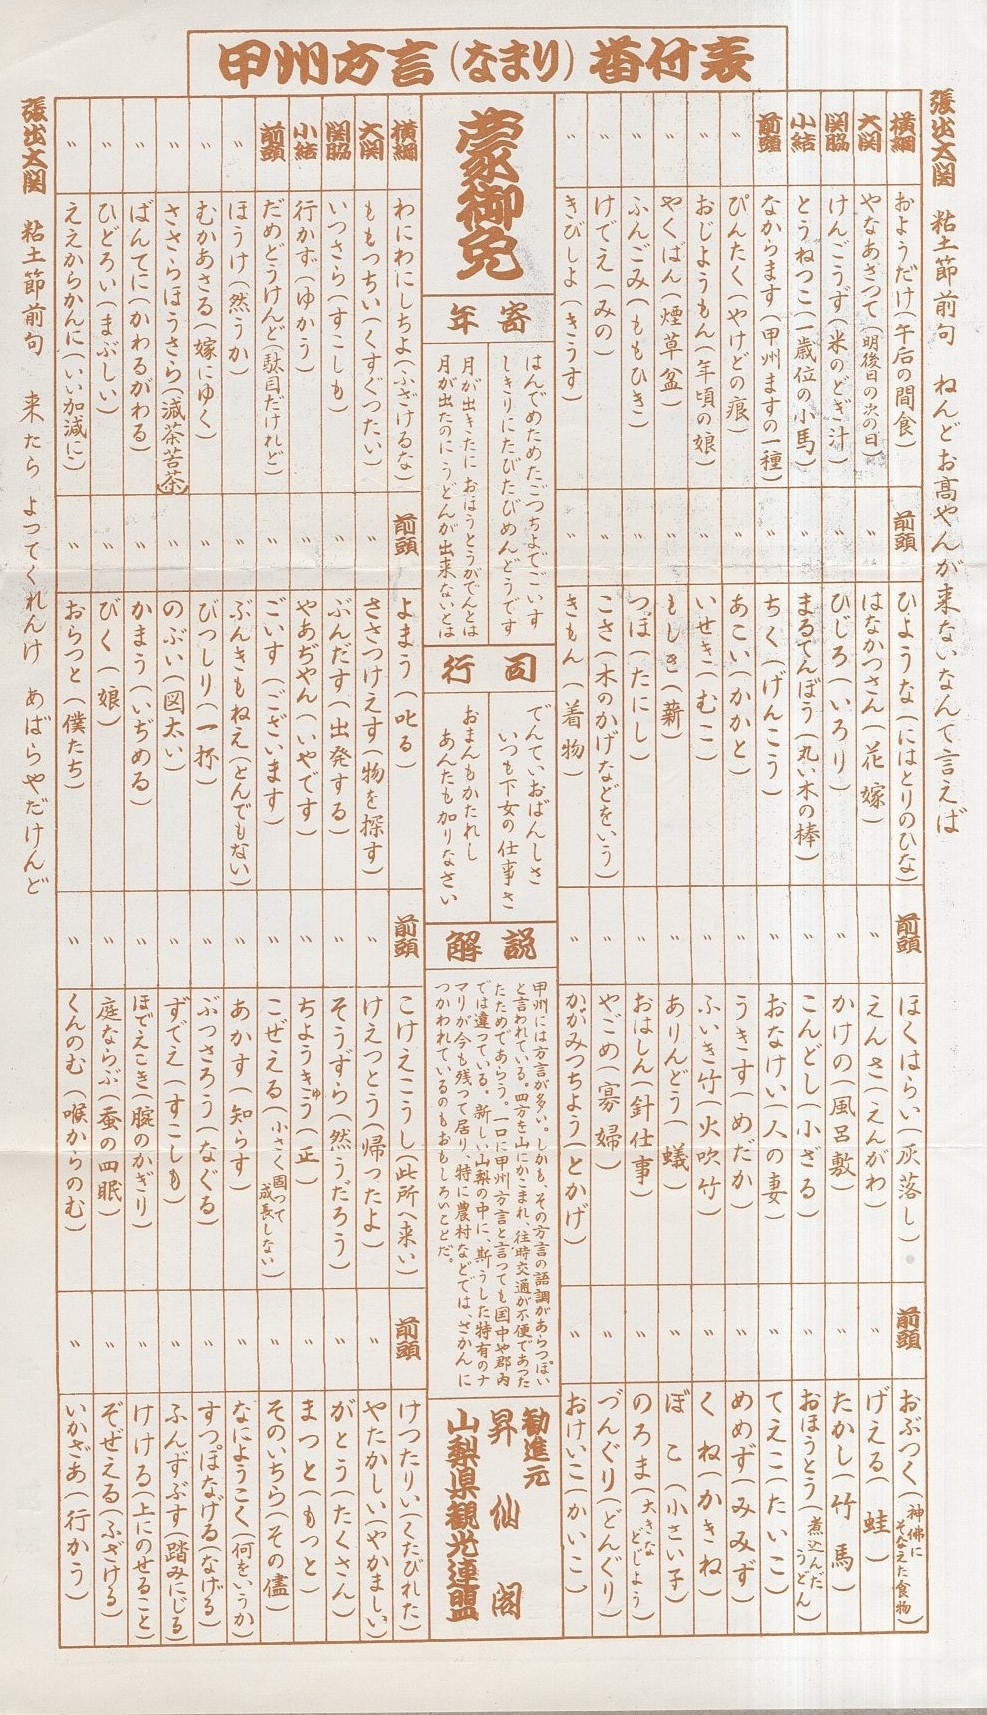 甲州方言（なまり）番付表
張出大関　粘土節前句　ねんどお高やんが来ないなんて言えば
横綱　おようだけ（午后の間食）
大関　やなあさつて（明後日の次の日）
関脇　けんごうず（米のとぎ汁）
小結　とうねつこ（一歳位の小馬）
前頭　なからます（甲州ますの一種）
〃　ぴんたく（やけどの痕）
〃　おじようもん（年頃の娘）
〃　やくばん（煙草盆）
〃　ふんごみ（ももひき）
〃　けでえ（みの）
〃　きびしよ（きうす）
前頭　ひような（にはとりのひな）
〃　はなかつさん（花嫁）
〃　ひじろ（いろり）
〃　まるてんぼう（丸い木の棒）
〃　ちく（げんこう）
〃　あこい（かかと）
〃　いせき（むこ）
〃　もしき（薪）
〃　つぼ（たにし）
〃　こさ（木のかげなどをいう）
〃　きもん（着物）
前頭　ほくはらい（灰落し）
〃　えんさ（えんがわ）
〃　かけの（風呂敷）
〃　こんどし（小ざる）
〃　おなけい（人の妻）
〃　うきす（めだか）
〃　ふいき竹（火吹竹）
〃　ありんどう（蟻）
〃　おはしん（針仕事）
〃　やごめ（寡婦）
〃　かがみつちよう（とかげ）
前頭　おぶつく（神佛にそなえた食物）
〃　げえる（蛙）
〃　たかし（竹馬）
〃　おほうとう（煮込んだうどん）
〃　てえこ（たいこ）
〃　めめず（みみず）
〃　くね（かきね）
〃　ぼこ（小さい子）
〃　のろま（大きなどじよう）
〃　づんぐり（どんぐり）
〃　おけいこ（かいこ）
蒙御免
年寄
はんでめためたごつちよでごいす
しきりにたびたびめんどうです
月が出きたに おほうとうがでんとは
月が出たのに うどんが出来ないとは
行司
でんていおばんしさ
いつも下女の仕事さ
おまんもかたれし
あんたも加りなさい
解説
甲州には方言が多い。しかも、その方言の語調があらつぽい
と言われている。四方を山にかこまれ、往時交通が不便であつた
たためであらう。一口に甲州方言と言つても国中や郡内
では違つている。新しい山梨の中に、斯うした特有のナ
マリが今も残つて居り、特に農村などでは、さかんに
つかわれているのもおもしろいことだ。
勧進元
昇仙閣
山梨県観光連盟
横綱　わにわにしちよ（ふざけるな）
大関　ももつちい（くすぐつたい）
関脇　いつさら（すこしも）
小結　行かず（ゆかう）
前頭　だめどうけんど（駄目だけれど）
〃　ほうけ（然うか）
〃　むかあさる（嫁にゆく）
〃　ささらほうさら（減茶苦茶）
〃　ばんてに（かわるがわる）
〃　ひどろい（まぶしい）
〃　ええからかんに（いい加減に）
前頭　よまう（叱る）
〃　ささつけえす（物を探す）
〃　ぶんだす（出発する）
〃　やあぢやん（いやです）
〃　ごいす（ございます）
〃　ぶんきもねえ（とんでもない）
〃　びつしり（一杯）
〃　のぶい（図太い）
〃　かまう（いぢめる）
〃　びく（娘）
〃　おらつと（僕たち）
前頭　こけえこうし（此所へ来い）
〃　けえつとう（帰つたよ）
〃　そうずら（然うだろう）
〃　ちようきゅう（正）
〃　こぜえる（小さく固つて成長しない）
〃　あかす（知らす）
〃　ぶつさろう（なぐる）
〃　ずでえ（すこしも）
〃　ほでえこき（腚のかぎり）
〃　庭ならぶ（蚕の四眠）
〃　くんのむ（喉からのむ）
前頭　けつたりい（くたびれた）
〃　やたかしい（やかましい）
〃　がとう（たくさん）
〃　まつと（もつと）
〃　そのいちら（その儘）
〃　なにようこく（何をいうか）
〃　すつぽなげる（なげる）
〃　ふんずぶす（踏みにじる）
〃　けける（上にのせること）
〃　ぞぜえる（ふざける）
〃　いかざあ（行かう）
張出大関　粘土節前句　来たら よつてくれんけ めばらやだけんど